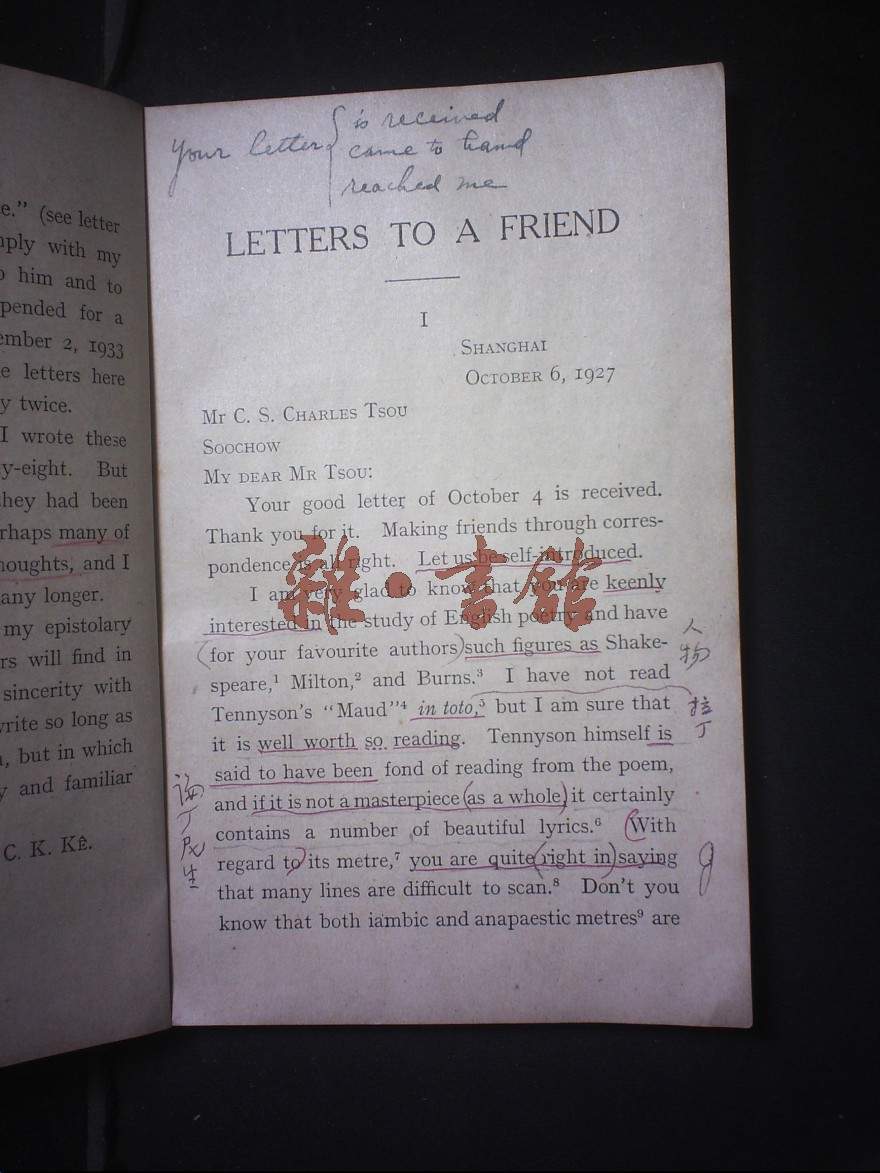 e." (see letter
mply with my
o him and to
pended for a
ember 2, 1933
e letters here
y twice.
I wrote these
y-eight. But
they had been
rhaps many of
houghts, and I
any longer.
my epistolary
rs will find in
sincerity with
write so long as
, but in which
y and familiar
C. K. KÊ.
Your letter { is received
came to hand
reached me
LETTERS TO A FRIEND
I
SHANGHAI
OCTOBER 6, 1927
MR C. S. CHARLES TSOU
SOOCHOW
MY DEAR MR TSOU:
Your good letter of October 4 is received.
Thank you for it. Making friends through corres-
pondence is all right. Let us be self-introduced.
I am very glad to know that you are keenly
interested in the study of English poetry and have
(for your favourite authors) such figures as Shake-
人物
speare,¹ Milton,² and Burns.³ I have not read
Tennyson's "Maud"⁴ in toto,⁵ but I am sure that
拉丁
it is well worth so reading. Tennyson himself is
said to have been fond of reading from the poem,
and if it is not a masterpiece (as a whole) it certainly
contains a number of beautiful lyrics.⁶ (With
regard to) its metre,⁷ you are quite (right in) saying
that many lines are difficult to scan.⁸ Don't you
know that both iambic and anapaestic metres⁹ are
雜·書館